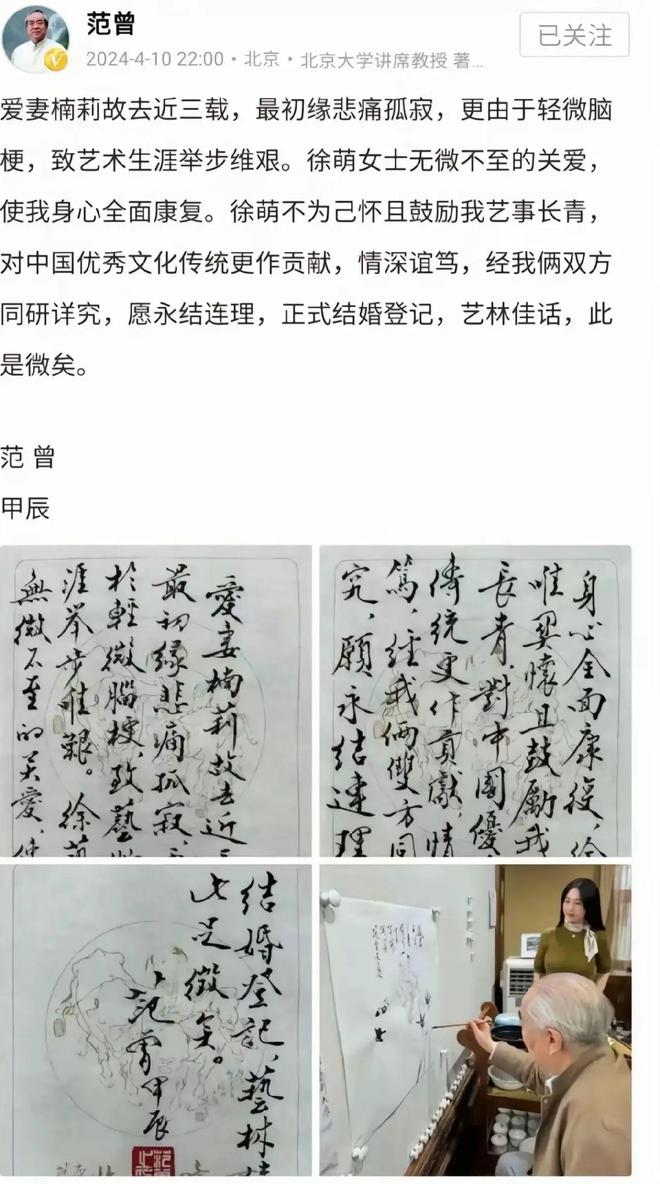 范曾
2024-4-10 22:00·北京·北京大学讲席教授 著...
已关注
爱妻楠莉故去近三载，最初缘悲痛孤寂，更由于轻微脑
梗，致艺术生涯举步维艰。徐萌女士无微不至的关爱，
使我身心全面康复。徐萌不为己怀且鼓励我艺事长青，
对中国优秀文化传统更作贡献，情深谊笃，经我俩双方
同研详究，愿永结连理，正式结婚登记，艺林佳话，此
是微矣。
范 曾
甲辰
愛妻楠莉故去近
最初缘悲痛孤寂，
於輕微腦梗，致藝
涯举步维艱。徐
無微不至的关愛，
身心全面康復，
懷且鼓勵我
長青，對中國優
傳統更作貢獻，情
篤，經我倆雙方同
究，願永结連理
结婚登記，藝林
此足徵矣。
范曾甲辰